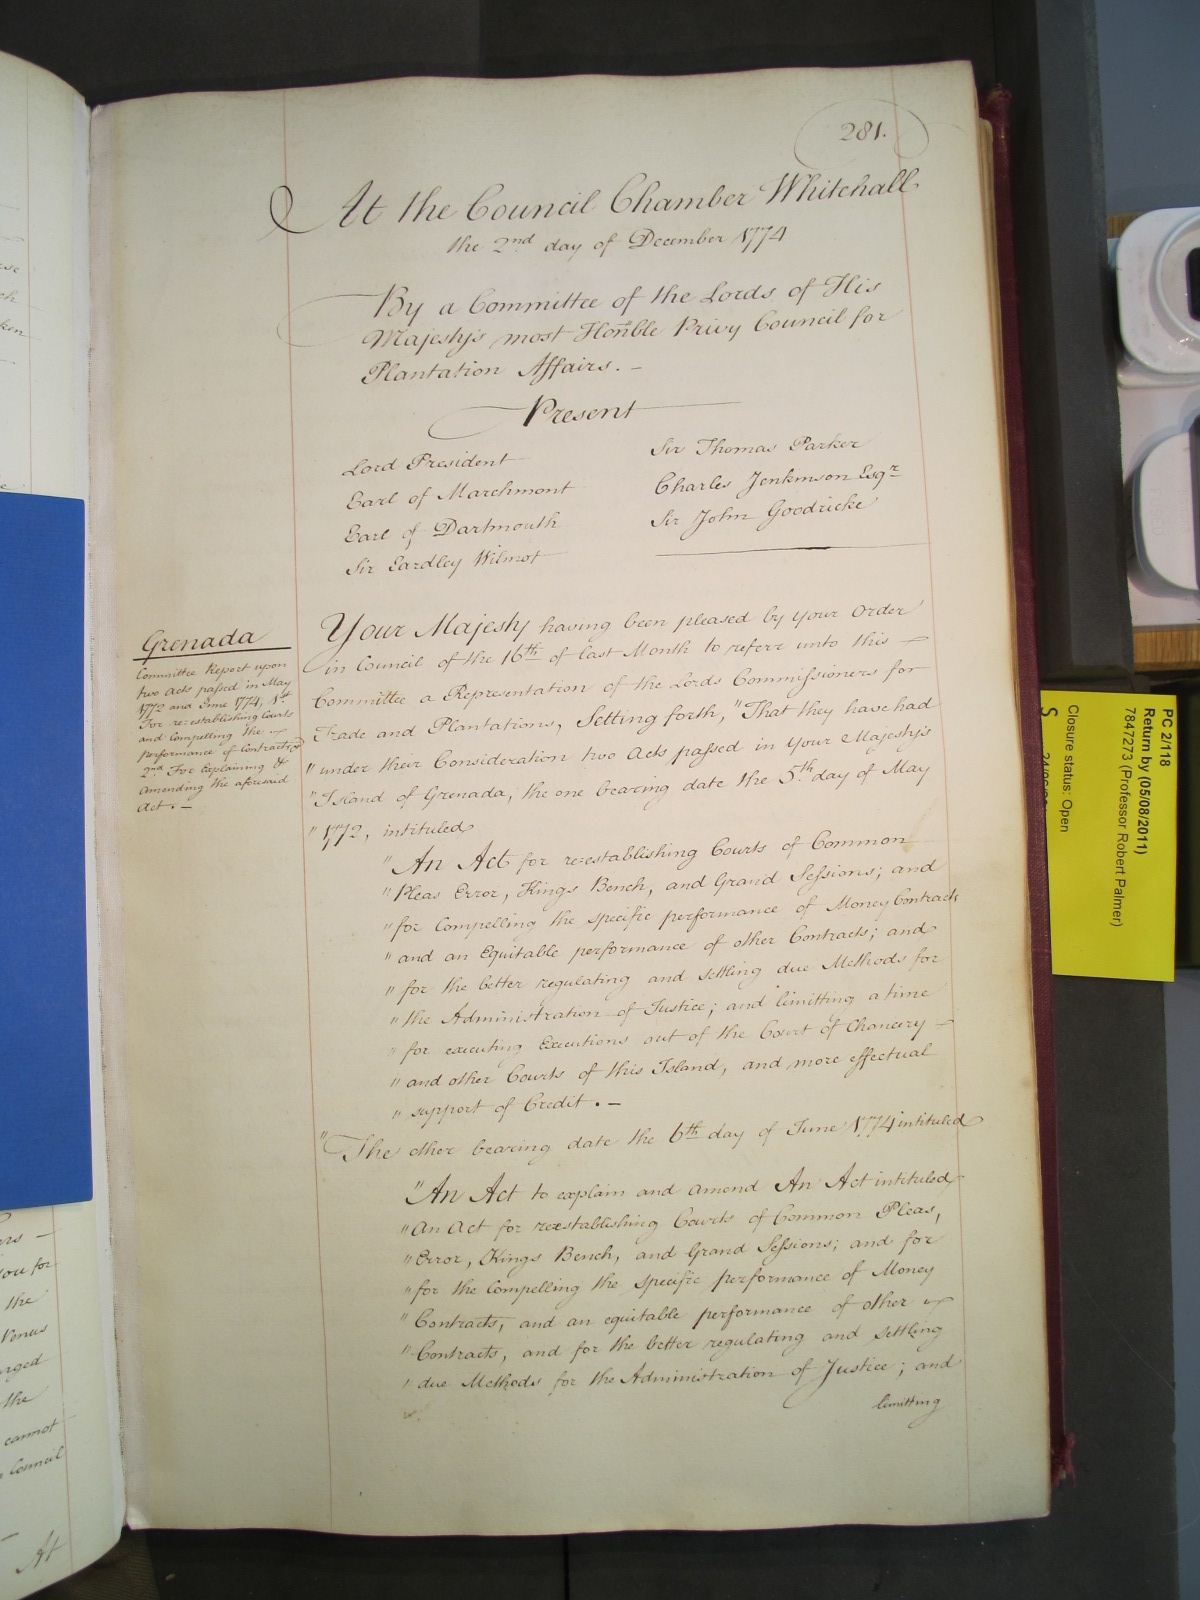 281.
At the Council Chamber Whitehall
the 2nd day of December 1774
By a Committee of the Lords of His
Majesty's most Honble Privy Council for
Plantation Affairs. –
Present
Lord President
Earl of Marchmont
Earl of Dartmouth
Sir Eardley Wilmot
Sir Thomas Parker
Charles Jenkinson Esqr
Sir John Goodricke
Grenada
Committee Report upon
two Acts passed in May
1772 and June 1774, 1st
For re-establishing Courts
and Compelling the
performance of Contracts, &
2nd For Explaining &
Amending the aforesaid
Act. –
Your Majesty having been pleased by your Order
in Council of the 16th of last Month to referr unto this –
Committee a Representation of the Lords Commissioners for
Trade and Plantations, Setting forth, "That they have had
" under their Consideration two Acts passed in Your Majesty's
" Island of Grenada, the one bearing date the 5th day of May
" 1772, intituled
" An Act for re-establishing Courts of Common
" Pleas Error, Kings Bench, and Grand Sessions; and
" for Compelling the specific performance of Money Contracts
" and an Equitable performance of other Contracts; and
" for the better regulating and settling due Methods for
" the Administration of Justice; and limitting a time
" for executing Executions out of the Court of Chancery –
" and other Courts of this Island, and more effectual
" support of Credit. –
" The other bearing date the 6th day of June 1774 intituled
" An Act to explain and amend An Act intituled
" An Act for reestablishing Courts of Common Pleas,
" Error, Kings Bench, and Grand Sessions; and for
" for the Compelling the specific performance of Money
" Contracts, and an equitable performance of other
" Contracts, and for the better regulating and settling
" due Methods for the Administration of Justice; and
limitting
ken
you for
the
Venus
the
cannot
Council
At
PC 2/118
Return by (05/08/2011)
7847273 (Professor Robert Palmer)
Closure status: Open
S